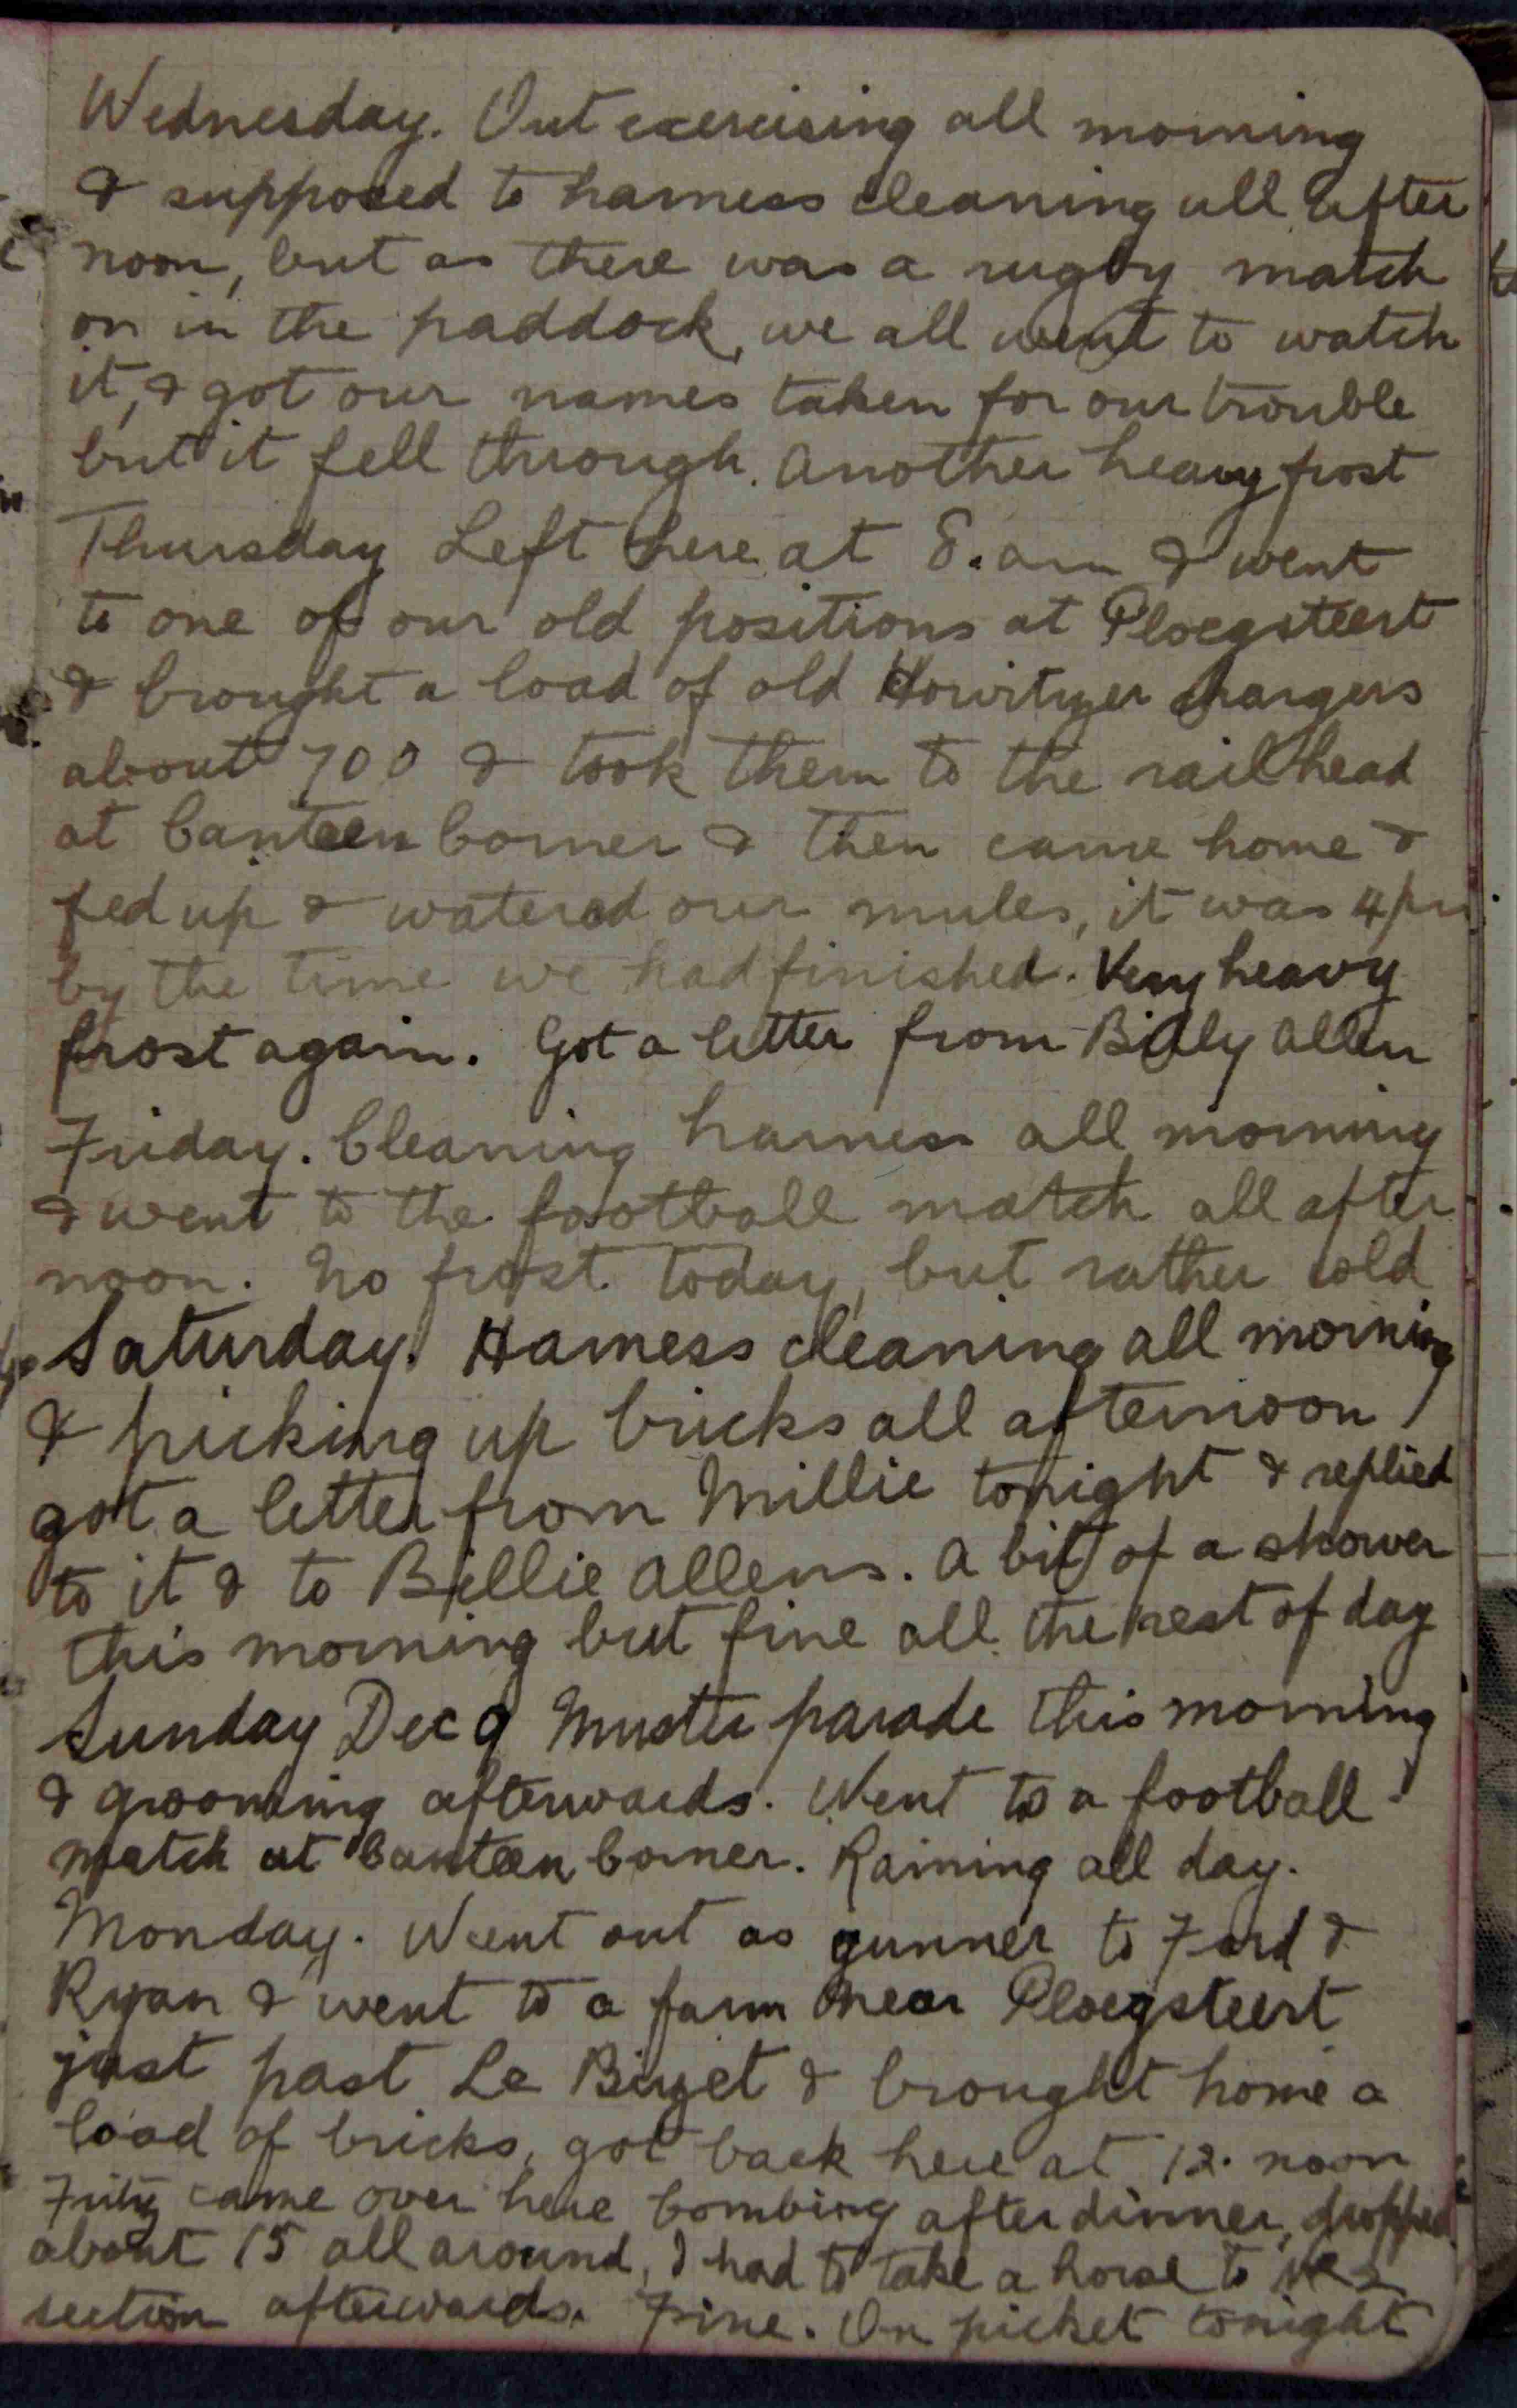 Wednesday. Out exercising all morning
& supposed to harness cleaning all after
noon, but as there was a rugby match
on in the paddock, we all went to watch
it, & got our names taken for our trouble
but it fell through. Another heavy frost
Thursday Left here at 8. am & went
to one of our old positions at Ploegsteert
& brought a load of old Howitzer chargers
about 700 & took them to the railhead
at Canteen Corner & then came home &
fed up & watered our mules, it was 4 pm
by the time we had finished. Very heavy
frost again. Got a letter from Billy Allen
Friday. Cleaning harness all morning
& went to the football match all after
noon. No frost today, but rather cold
Saturday. Harness cleaning all morning
& picking up bricks all afternoon
got a letter from Millie tonight & replied
to it & to Billie Allens. A bit of a shower
this morning but fine all the rest of day
Sunday Dec 9 Muster parade this morning
& grooming afterwards. Went to a football
match at Canteen Corner. Raining all day.
Monday. Went out as gunner to Ford &
Ryan & went to a farm near Ploegsteert
just past Le Bizet & brought home a
load of bricks, got back here at 12. noon
Fritz came over here bombing after dinner, dropped
about 15 all around, I had to take a horse to
section afterwards. Fine. On picket tonight